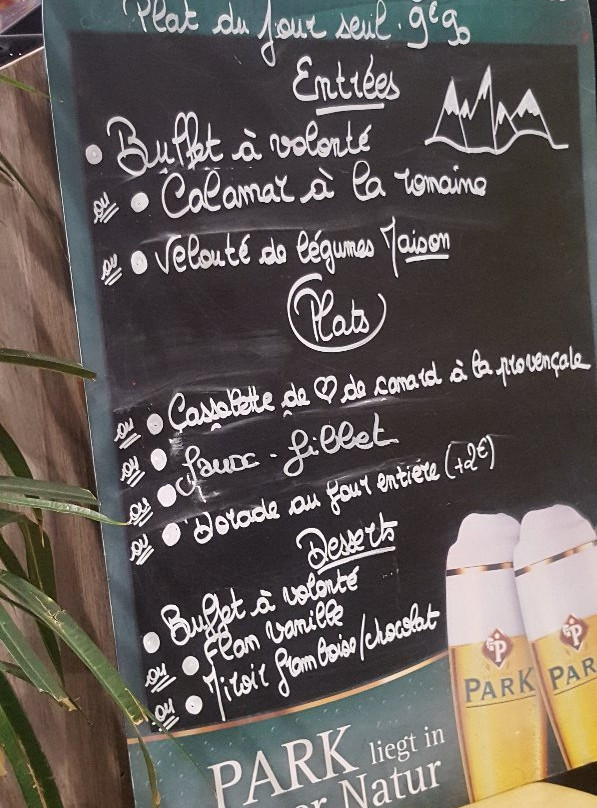 Plat du jour seul . 9€90
Entrées
• Buffet à volonté
ou • Calamar à la romaine
ou • Velouté de légumes Maison
Plats
• Cassolette de ♡ de canard à la provençale
ou • Faux-fillet
ou •
ou • Dorade au four entière (+2€)
Desserts
• Buffet à volonté
ou • Flan vanille
ou • Miroir framboise/chocolat
PARK liegt in
Natur
PARK
PAR